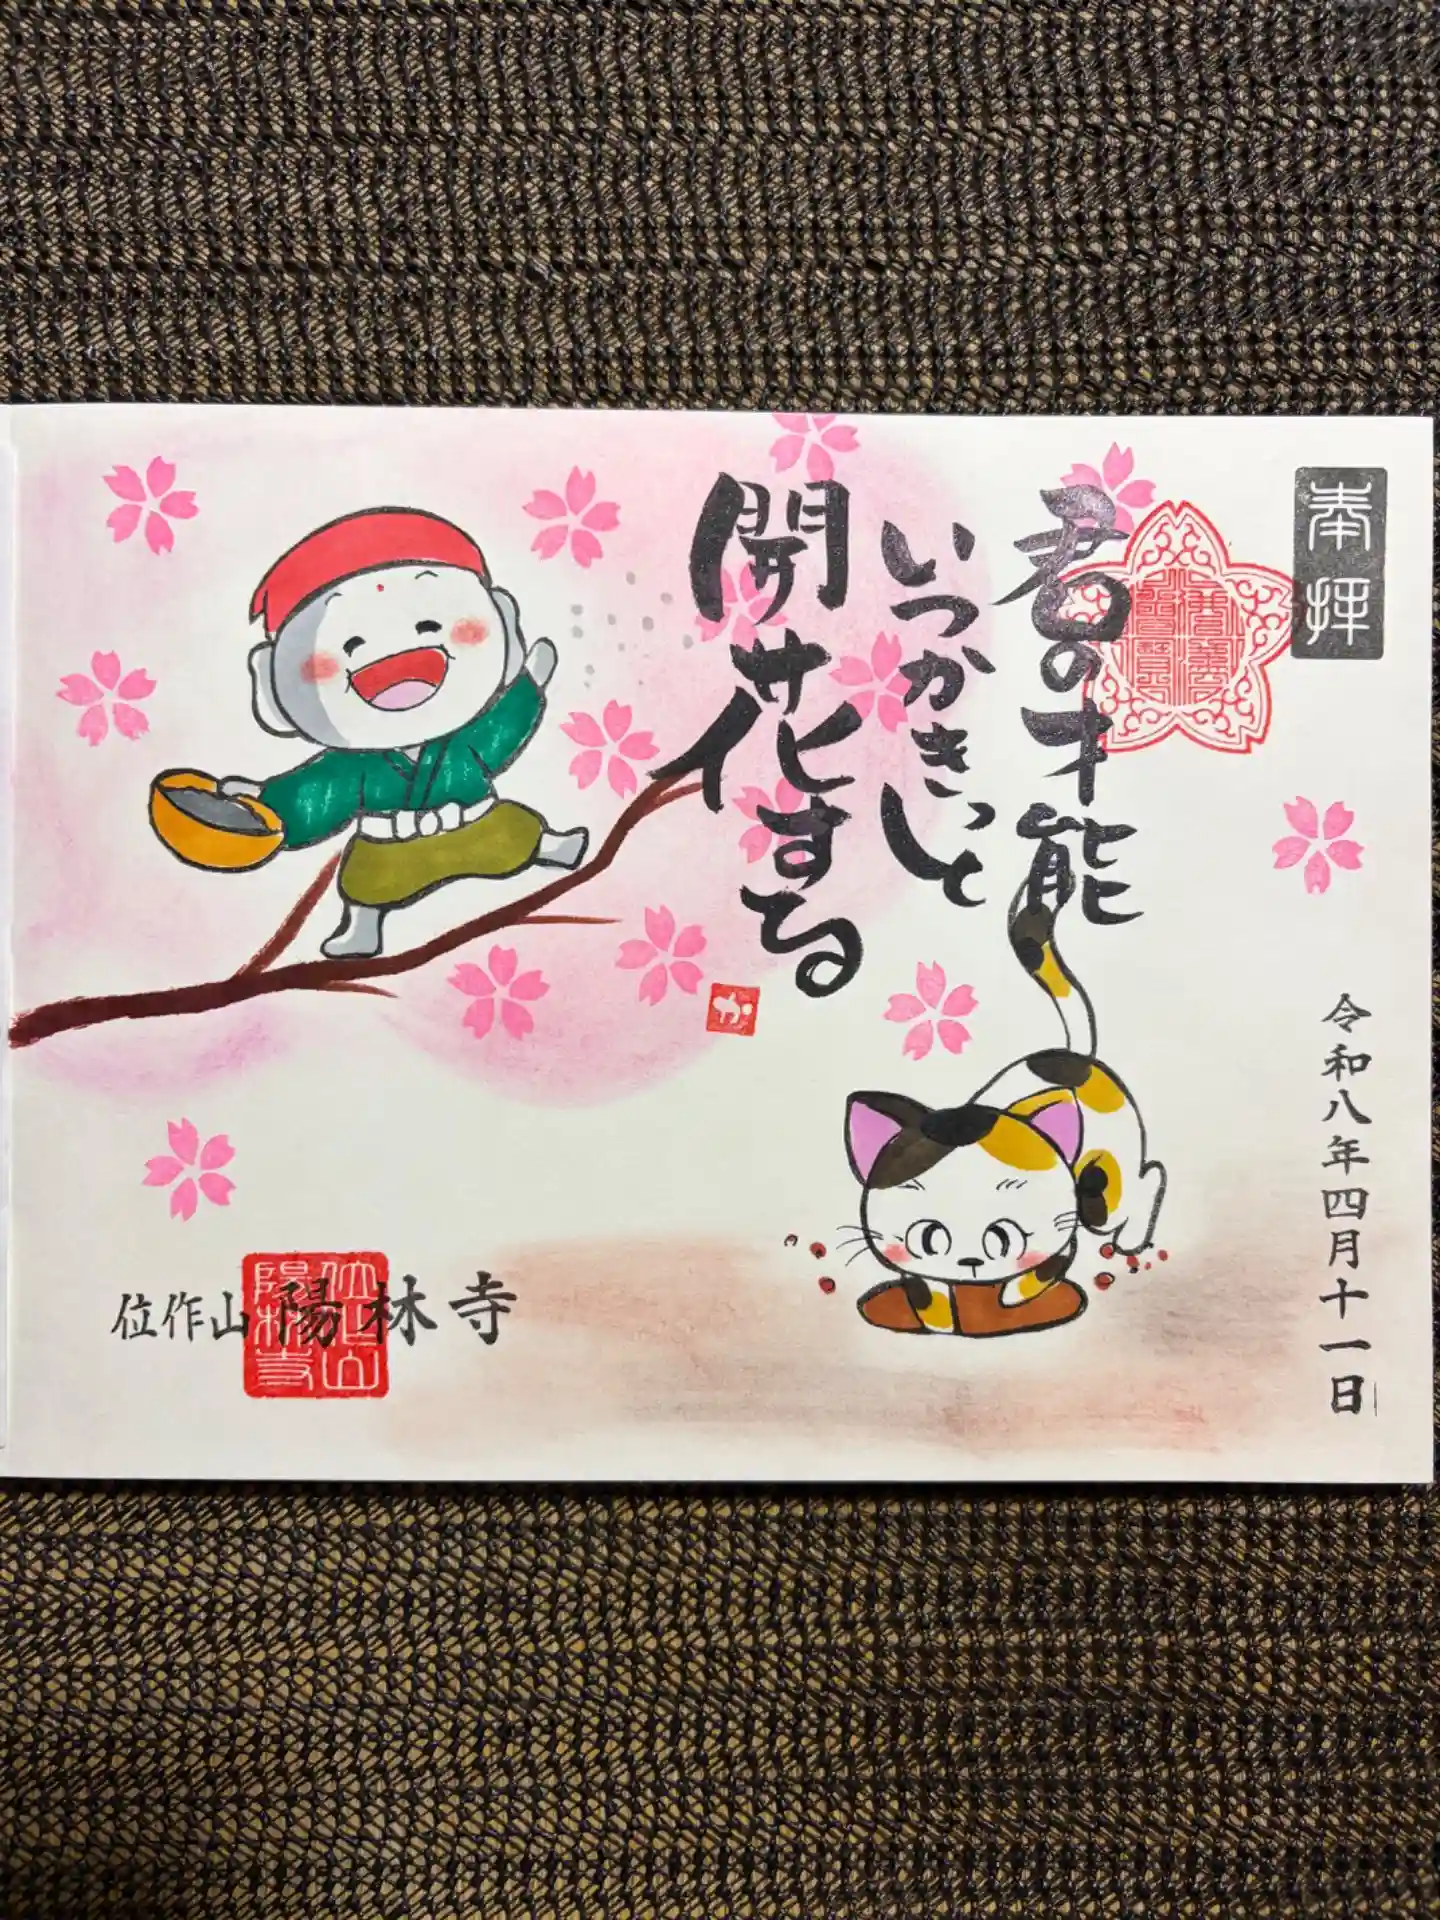 奉拝
君の才能
いつかきっと
開花する
か
令和八年四月十一日
位作山 陽林寺
位作山
陽林寺